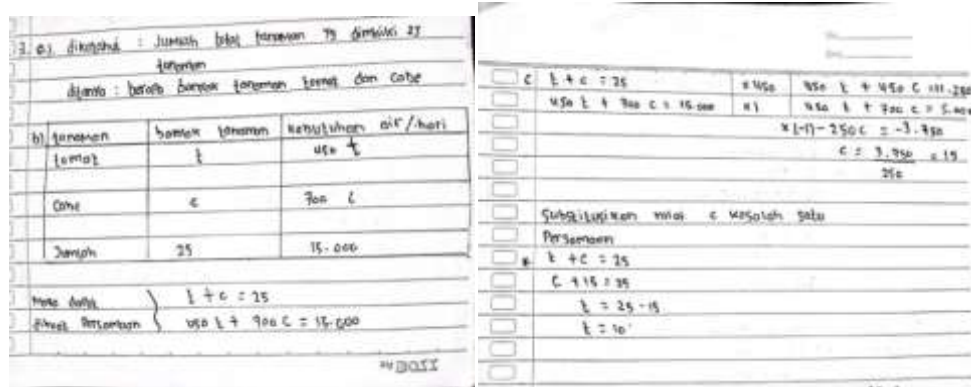 3. a). diketahui : Jumlah total tanaman yg dimiliki 25
tanaman
ditanya : berapa banyak tanaman tomat dan cabe
b) tanaman banyak tanaman kebutuhan air/hari
tomat t 450 t
Cabe c 700 c
Jumlah 25 15.000
Maka dapat t + c = 25
dibuat Persamaan 450 t + 700 c = 15.000
C t + c = 25 x 450 450 t + 450 c = 11.250
450 t + 700 c = 15.000 x 1 450 t + 700 c = 15.000
x (-1) - 250 c = -3.750
c = 3.750 = 15
250
Substitusikan nilai c kesalah satu
Persamaan
t + c = 25
t + 15 = 25
t = 25 - 15
t = 10